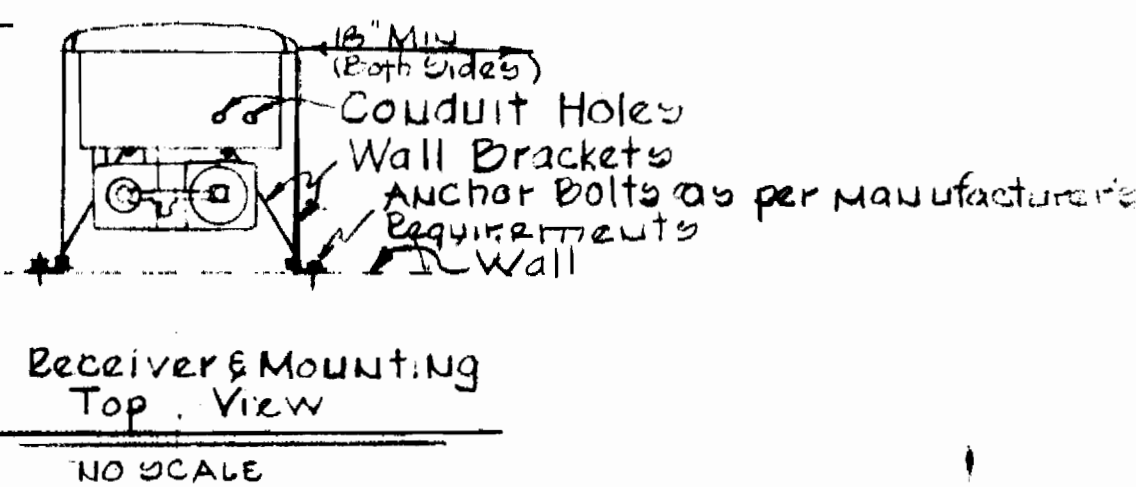 18" Min
(Both Sides)
Conduit Holes
Wall Brackets
Anchor Bolts as per Manufacturer's
Requirements
Wall
Receiver & Mounting
Top View
NO SCALE